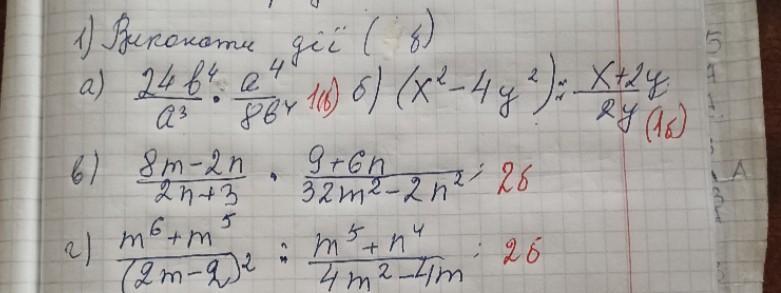 1) Виконати дії ( б)
а) 24b⁴/a³ · a⁴/8b⁴ 1(б) б) (x² − 4y²) : x+2y/2y (1б)
в) 8m−2n/2n+3 · 9+6n/32m²−2n² ; 2б
г) m⁶+m⁵/(2m−2)² : m⁵+n⁴/4m²−4m ; 2б